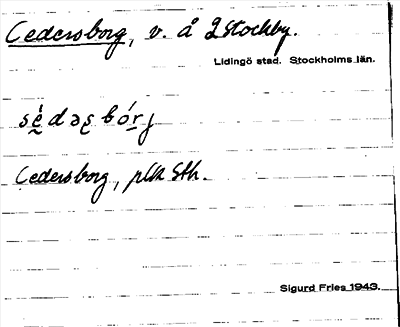 Cedersborg, v. å 2 Stockby.
Lidingö stad. Stockholms län.
Cedersborg, plk Sth.
Sigurd Fries 1943.